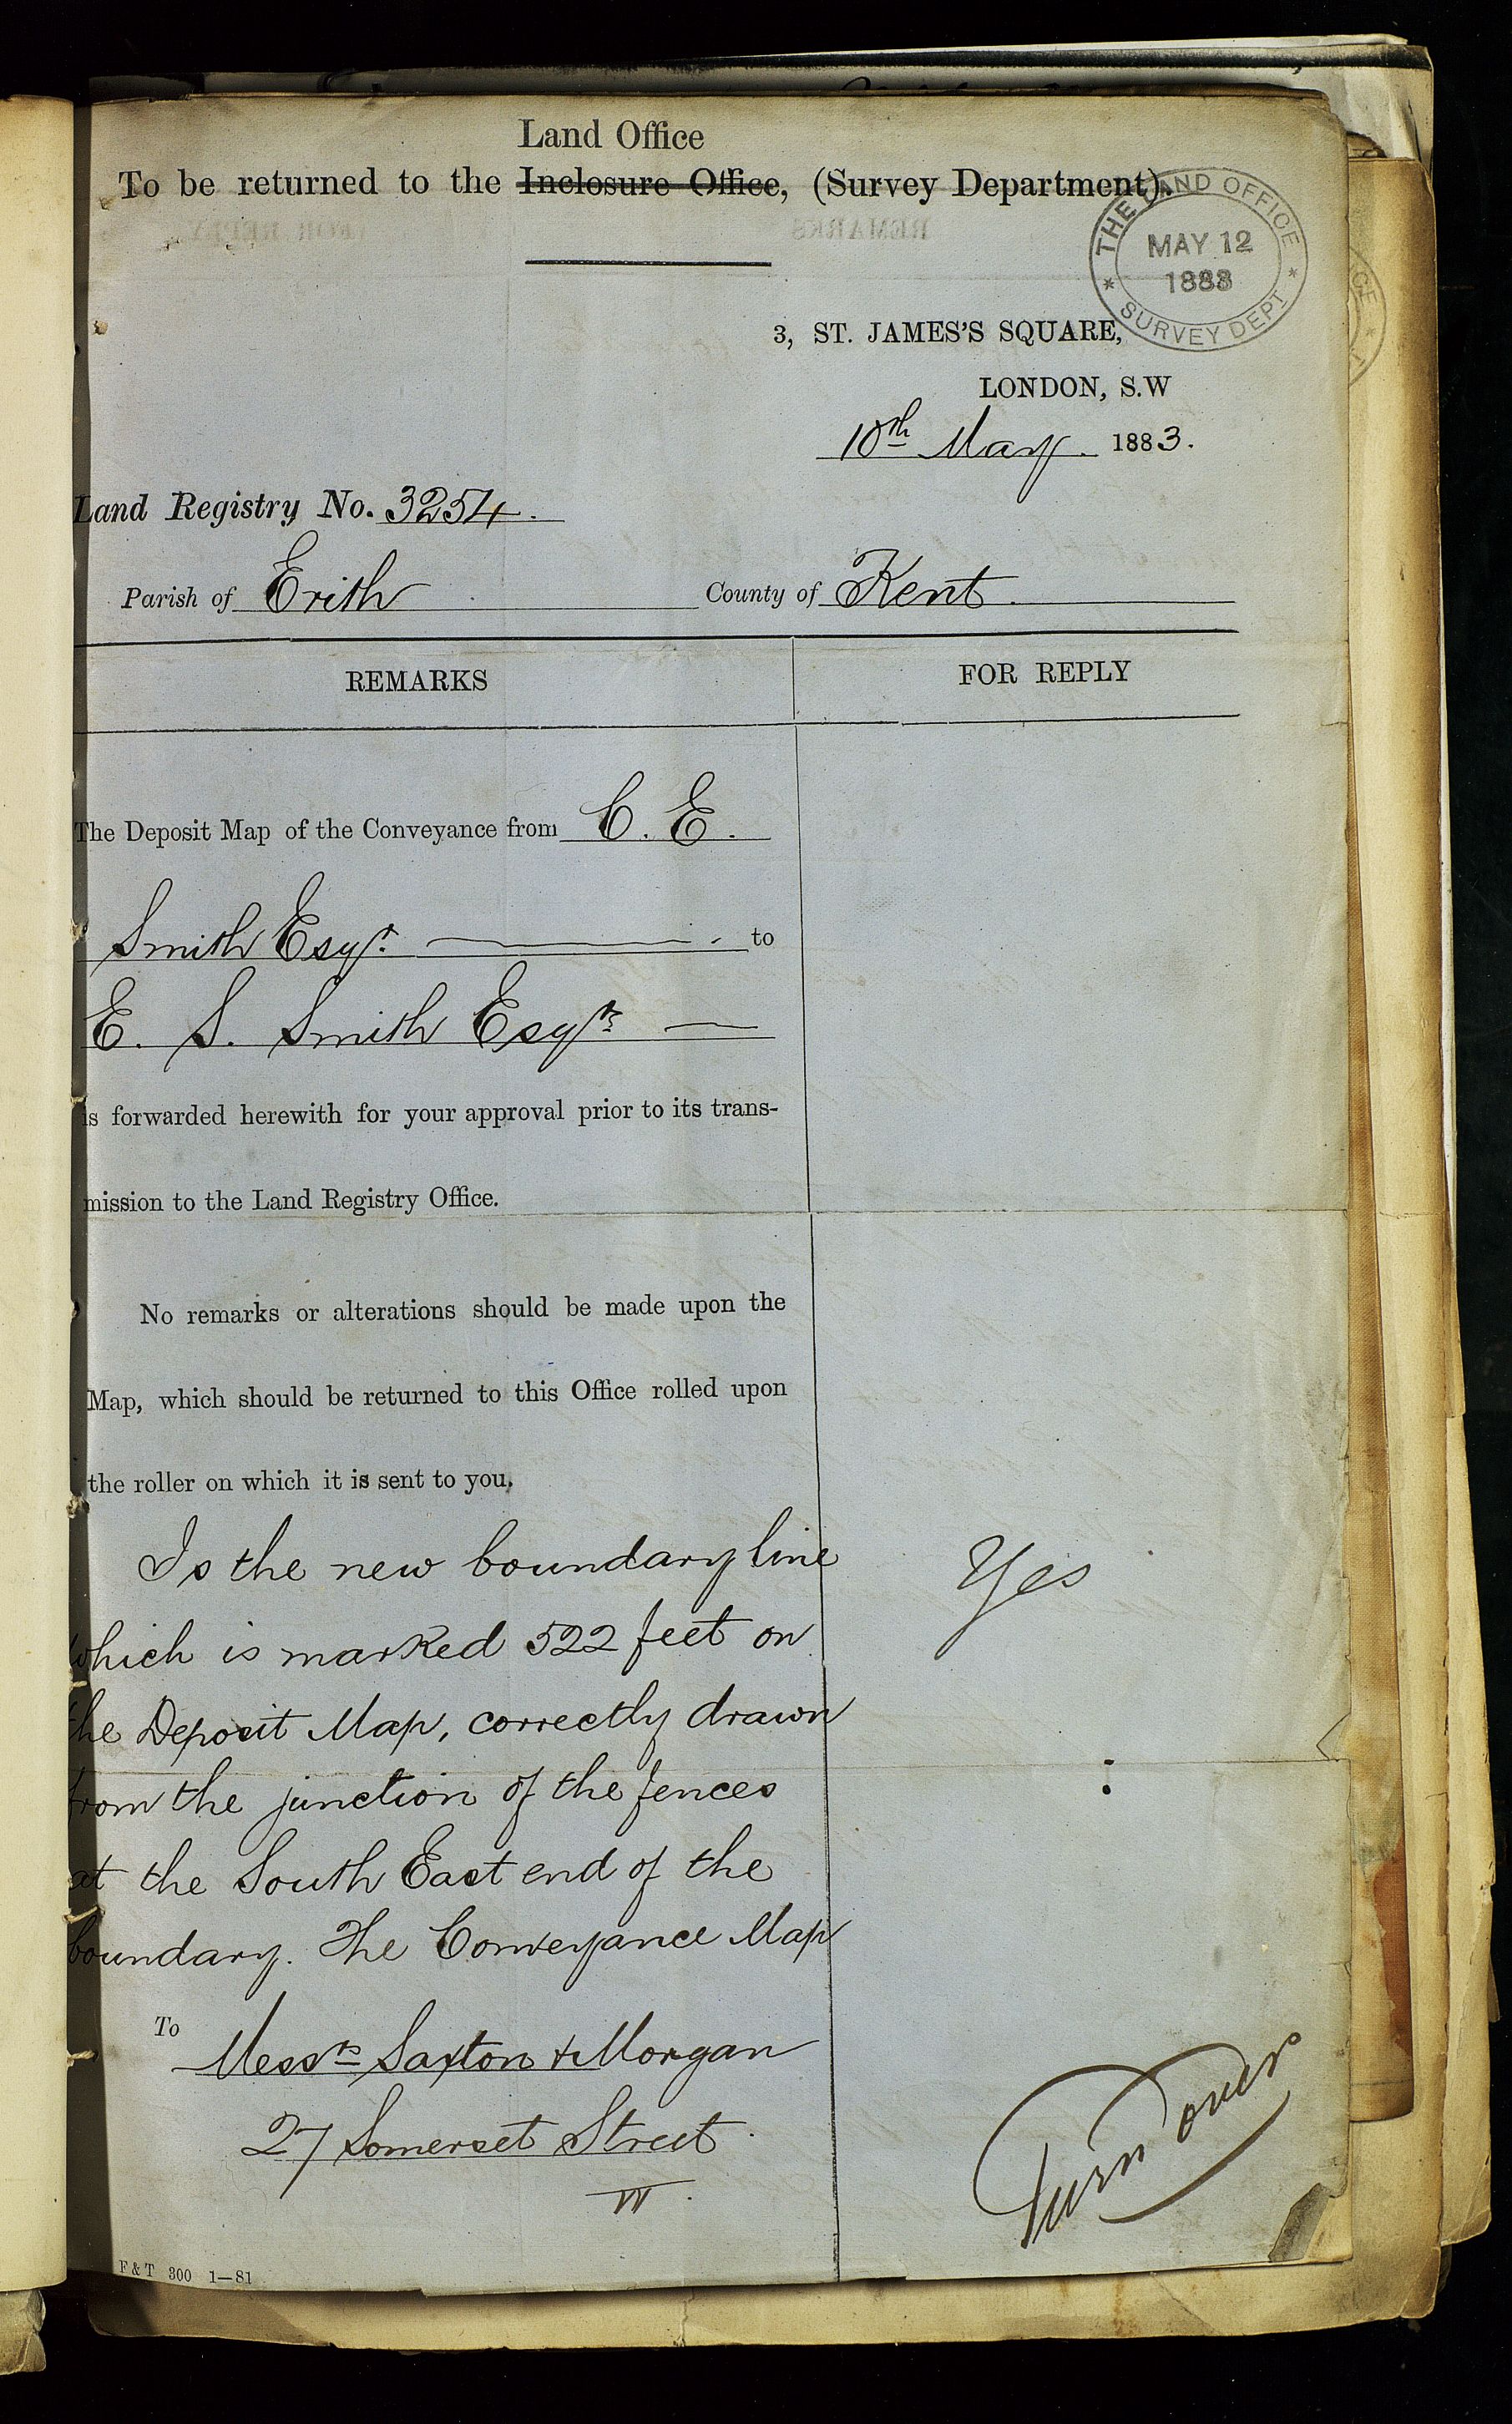 Land Office
To be returned to the Inclosure Office, (Survey Department).
THE LAND OFFICE
MAY 12
1883
* SURVEY DEPT *
3, ST. JAMES'S SQUARE,
LONDON, S.W
10th May. 1883.
Land Registry No. 3254.
Parish of Erith County of Kent.
REMARKS FOR REPLY
The Deposit Map of the Conveyance from C. E.
Smith Esqr. to
E. S. Smith Esqre
is forwarded herewith for your approval prior to its trans-
mission to the Land Registry Office.
No remarks or alterations should be made upon the
Map, which should be returned to this Office rolled upon
the roller on which it is sent to you.
Is the new boundary line Yes
which is marked 522 feet on
the Deposit Map, correctly drawn
from the junction of the fences
at the South East end of the
boundary. The Conveyance Map
To
Messrs Saxton & Morgan
27 Somerset Street
W.
Turn over
F & T 300 1—81